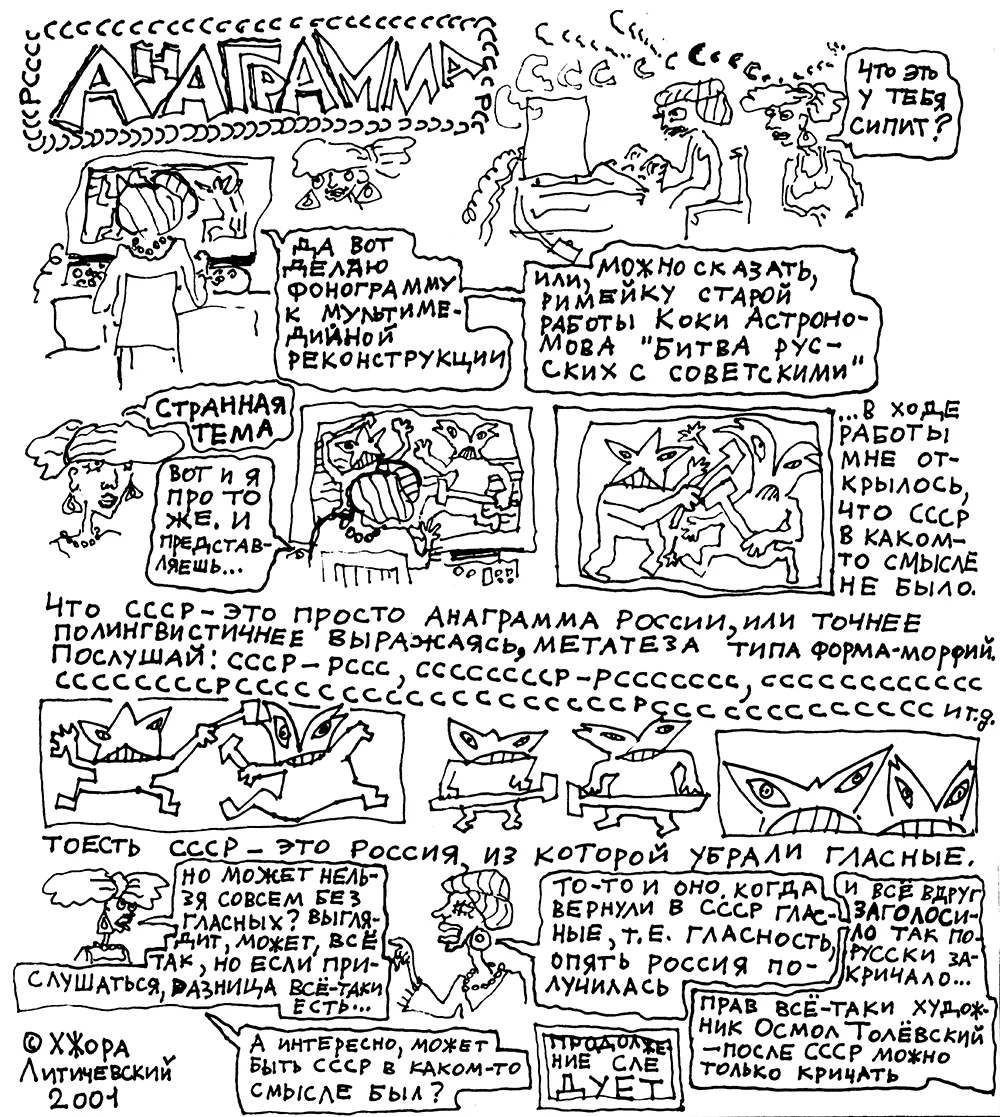 АНАГРАММА
ЧТО ЭТО
У ТЕБЯ
СИПИТ?
ДА ВОТ
ДЕЛАЮ
ФОНОГРАММУ
К МУЛЬТИМЕ-
ДИЙНОЙ
РЕКОНСТРУКЦИИ
ИЛИ, МОЖНО СКАЗАТЬ,
РИМЕЙКУ СТАРОЙ
РАБОТЫ КОКИ АСТРОНО-
МОВА "БИТВА РУС-
СКИХ С СОВЕТСКИМИ"
СТРАННАЯ
ТЕМА
ВОТ И Я
ПРО ТО
ЖЕ. И
ПРЕДСТАВ-
ЛЯЕШЬ...
...В ХОДЕ
РАБОТЫ
МНЕ ОТ-
КРЫЛОСЬ,
ЧТО СССР
В КАКОМ-
ТО СМЫСЛЕ
НЕ БЫЛО.
ЧТО СССР – ЭТО ПРОСТО АНАГРАММА РОССИИ, ИЛИ ТОЧНЕЕ
ПОЛИНГВИСТИЧНЕЕ ВЫРАЖАЯСЬ, МЕТАТЕЗА ТИПА ФОРМА-МОРФИЙ.
ПОСЛУШАЙ: СССР – РССС, СССССССССР – РСССССССС, ССССССССССССС
ССССССССССРСССССССССССССССССССССРССССССССССССССССС И Т.Д.
ТОЕСТЬ СССР – ЭТО РОССИЯ, ИЗ КОТОРОЙ УБРАЛИ ГЛАСНЫЕ.
НО МОЖЕТ НЕЛЬ-
ЗЯ СОВСЕМ БЕЗ
ГЛАСНЫХ? ВЫГЛЯ-
ДИТ, МОЖЕТ, ВСЁ
ТАК, НО ЕСЛИ ПРИ-
СЛУШАТЬСЯ, РАЗНИЦА ВСЁ-ТАКИ
ЕСТЬ...
ТО-ТО И ОНО. КОГДА
ВЕРНУЛИ В СССР ГЛАС-
НЫЕ, Т.Е. ГЛАСНОСТЬ,
ОПЯТЬ РОССИЯ ПО-
ЛУЧИЛАСЬ
И ВСЁ ВДРУГ
ЗАГОЛОСИ-
ЛО ТАК ПО-
РУССКИ ЗА-
КРИЧАЛО...
ПРАВ ВСЁ-ТАКИ ХУДОЖ-
НИК ОСМОЛ ТОЛЁВСКИЙ
– ПОСЛЕ СССР МОЖНО
ТОЛЬКО КРИЧАТЬ
А ИНТЕРЕСНО, МОЖЕТ
БЫТЬ СССР В КАКОМ-ТО
СМЫСЛЕ БЫЛ?
ПРОДОЛЖЕ
НИЕ СЛЕ
ДУЕТ
© ХЖОРА
ЛИТИЧЕВСКИЙ
2001